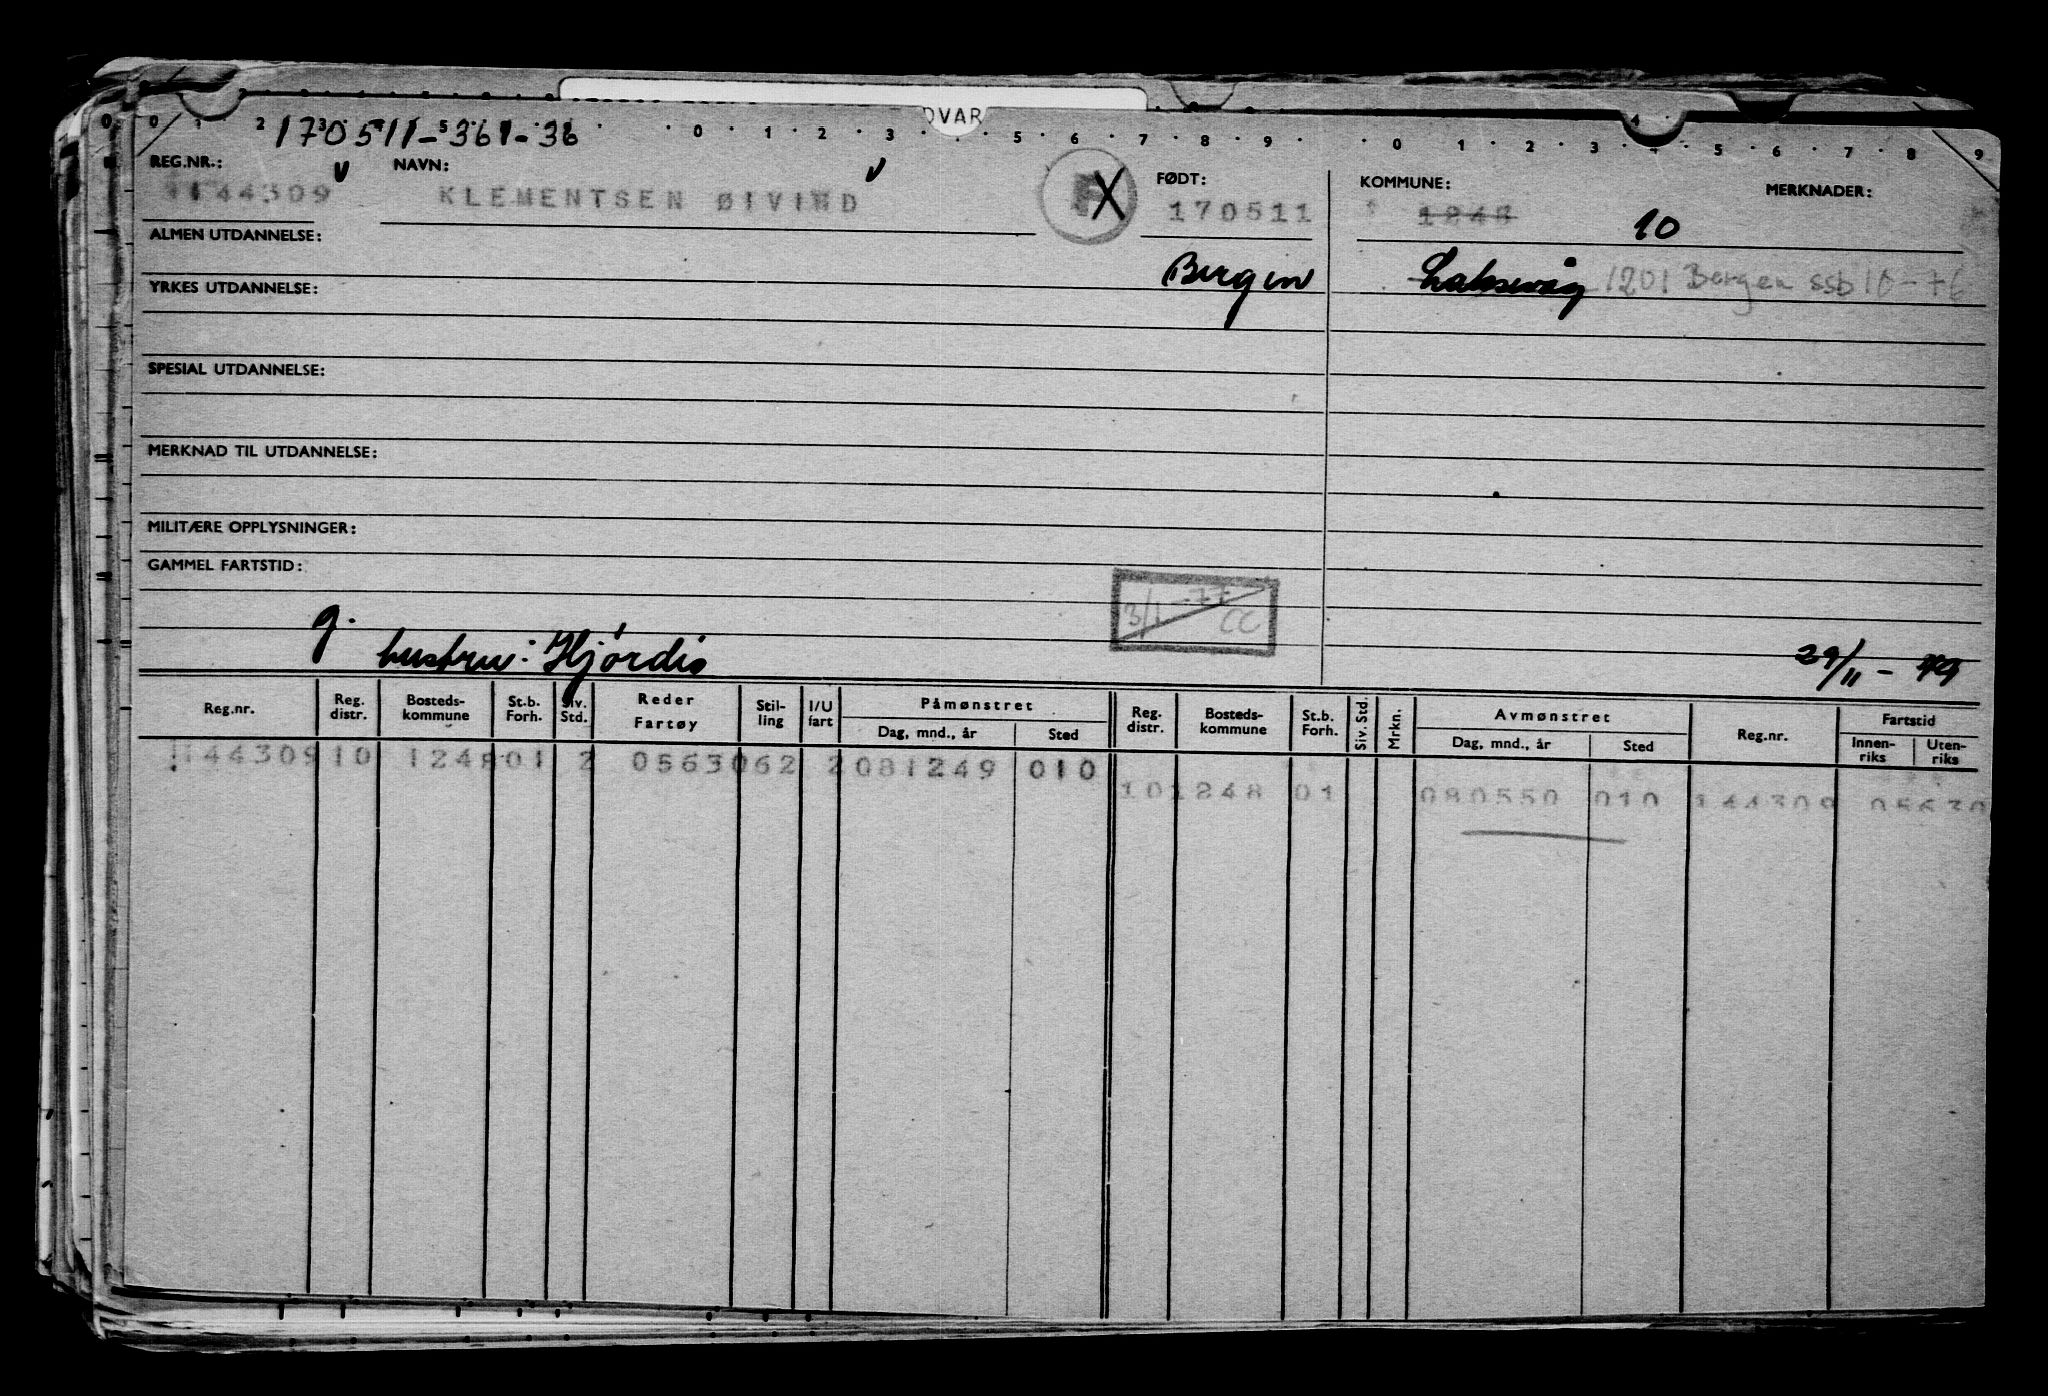 0 1 2 3 4 5 6 7 8 9 0 1 2 3 4 5 6 7 8 9 0 1 2 3 4 5 6 7 8 9
DVAR
170511-361-36
REG.NR.: NAVN: FØDT: KOMMUNE: MERKNADER:
1144309 KLEMENTSEN ØIVIND F 170511 1248 10
ALMEN UTDANNELSE:
Bergen Laksevåg 1201 Bergen ssb 10-76
YRKES UTDANNELSE:
SPESIAL UTDANNELSE:
MERKNAD TIL UTDANNELSE:
MILITÆRE OPPLYSNINGER:
GAMMEL FARTSTID:
3/1 -77 CC
g.
hustru: Hjördis 29/11-49
Reg.nr. Reg. distr. Bosteds-kommune St.b. Forh. Siv. Std. Reder Fartøy Stil-ling I/U fart Påmønstret Dag, mnd., år Sted Reg. distr. Bosteds-kommune St.b. Forh. Siv. Std. Mrkn. Avmønstret Dag, mnd., år Sted Reg.nr. Fartstid Innen-riks Uten-riks
1144309 10 1248 01 2 05630 62 2 081249 010
10 1248 01 080550 010 144309 05630